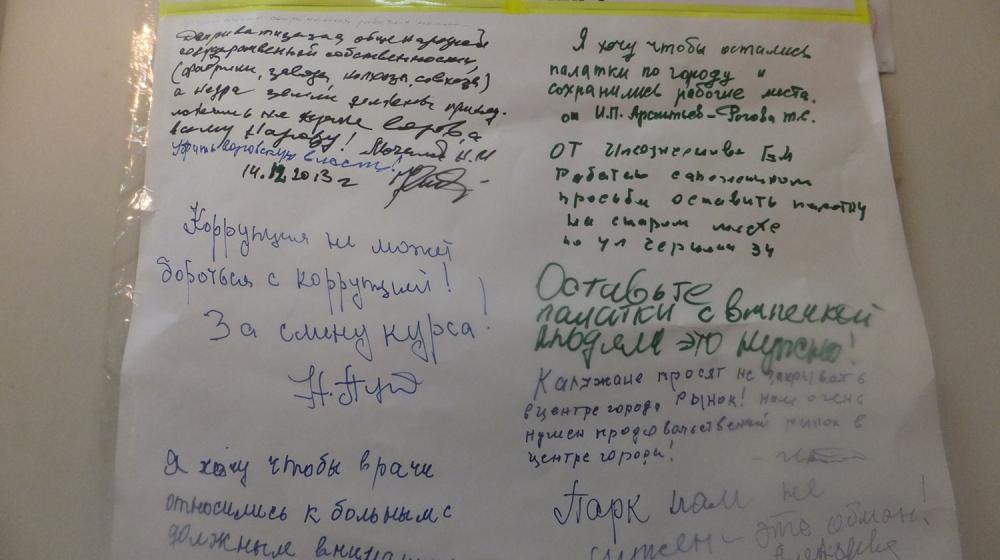 общенародной
государственной собственности
(фабрики, заводы, колхозы, совхозы)
а недра земли должны принад.
лежать не кучке воров, а
всему народу!
воровскую власть!
14.12.2013 г
Коррупция не может
бороться с коррупцией!
За смену курса!
Я хочу чтобы врачи
относились к больным с
должным
Я хочу чтобы остались
палатки по городу и
сохранились рабочие места.
от И.П.
от
Работаю сапожником
просьба оставить палатку
на старом месте
по ул 34
Оставьте
палатки с выпечкой
людям это нужно!
Калужане просят не закрывать
в центре города рынок! нам очень
нужен продовольственный рынок в
центре города!
Парк нам не
нужен - это обман!